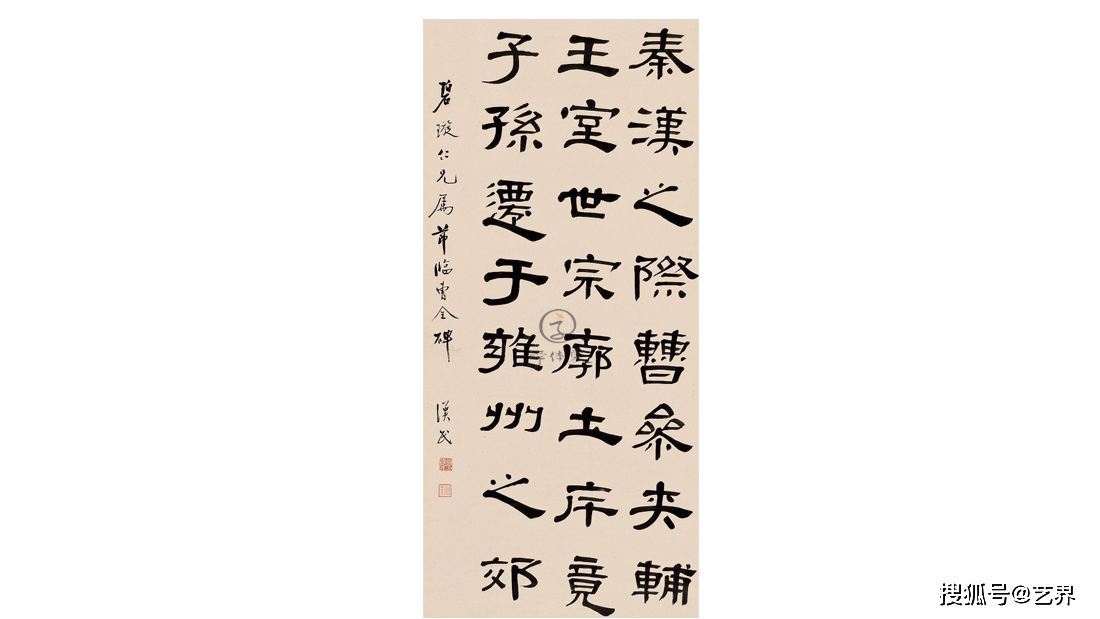 秦漢之際曹參夾輔
王室世宗廓土庁竟
子孫遷于雍州之郊
碧漩仁兄属 茀临曹全碑
漢民
搜狐号@艺界